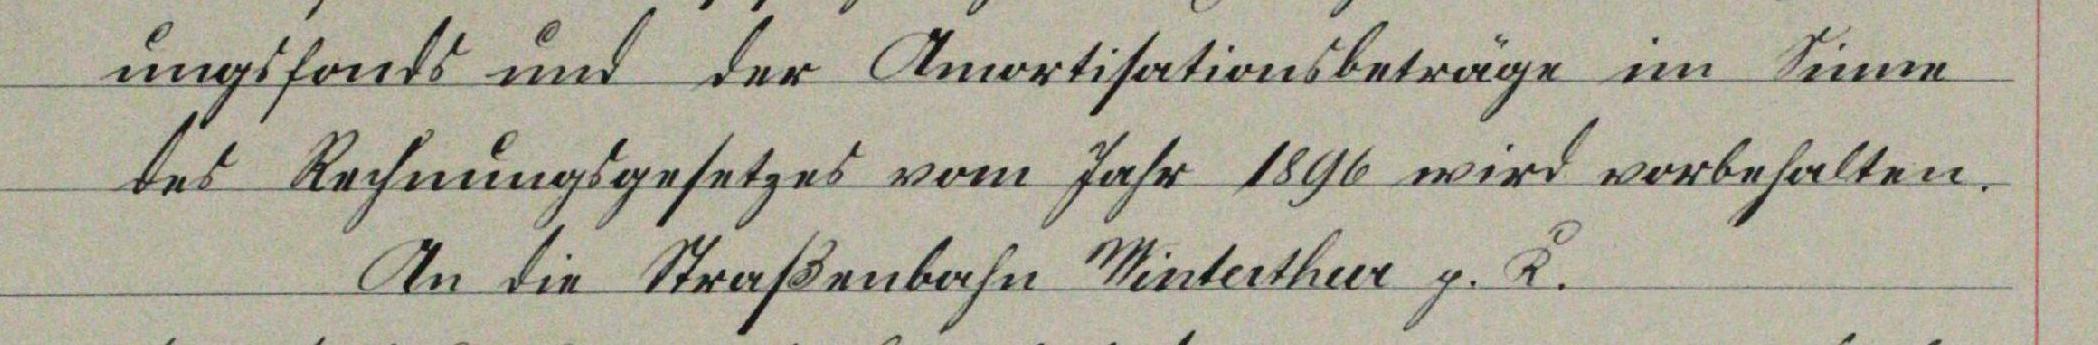 ungsfonds und der Amortisationsbeträge im Sinne
des Rechnungsgesetzes vom Jahr 1896 wird vorbehalten.
An die Straßenbahn Winterthur p. K.